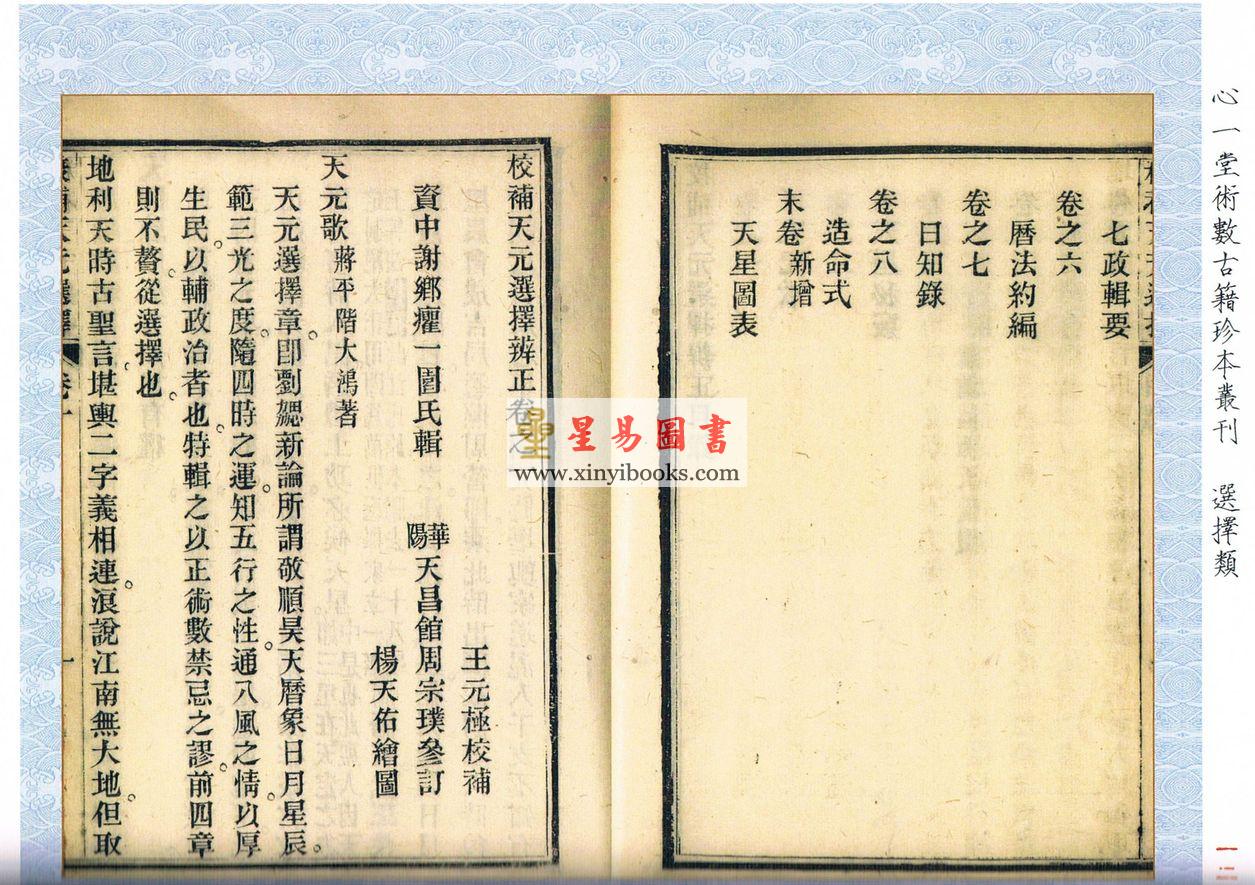 心一堂術數古籍珍本叢刊 選擇類
七政輯要
卷之六
曆法約編
卷之七
日知錄
卷之八
造命式
末卷新增
天星圖表
校補天元選擇辨正卷之一
王元極校補
資中謝鄉癯一圖氏輯
華陽天昌館周宗璞參訂
楊天佑繪圖
天元歌 蔣平階大鴻著
天元選擇章。即劉勰新論。所謂敬順昊天曆象日月星辰。
範三光之度。隨四時之運。知五行之性。通八風之情。以厚
生民。以輔政治者也。特輯之以正術數禁忌之謬。前四章
則不贅。從選擇也。
地利天時古聖言。堪輿二字義相連。浪說江南無大地。但取
星易圖書
www.xinyibooks.com